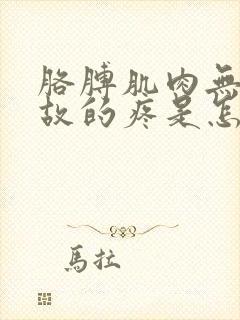 胳膊肌肉無
故的疼是怎
馬拉